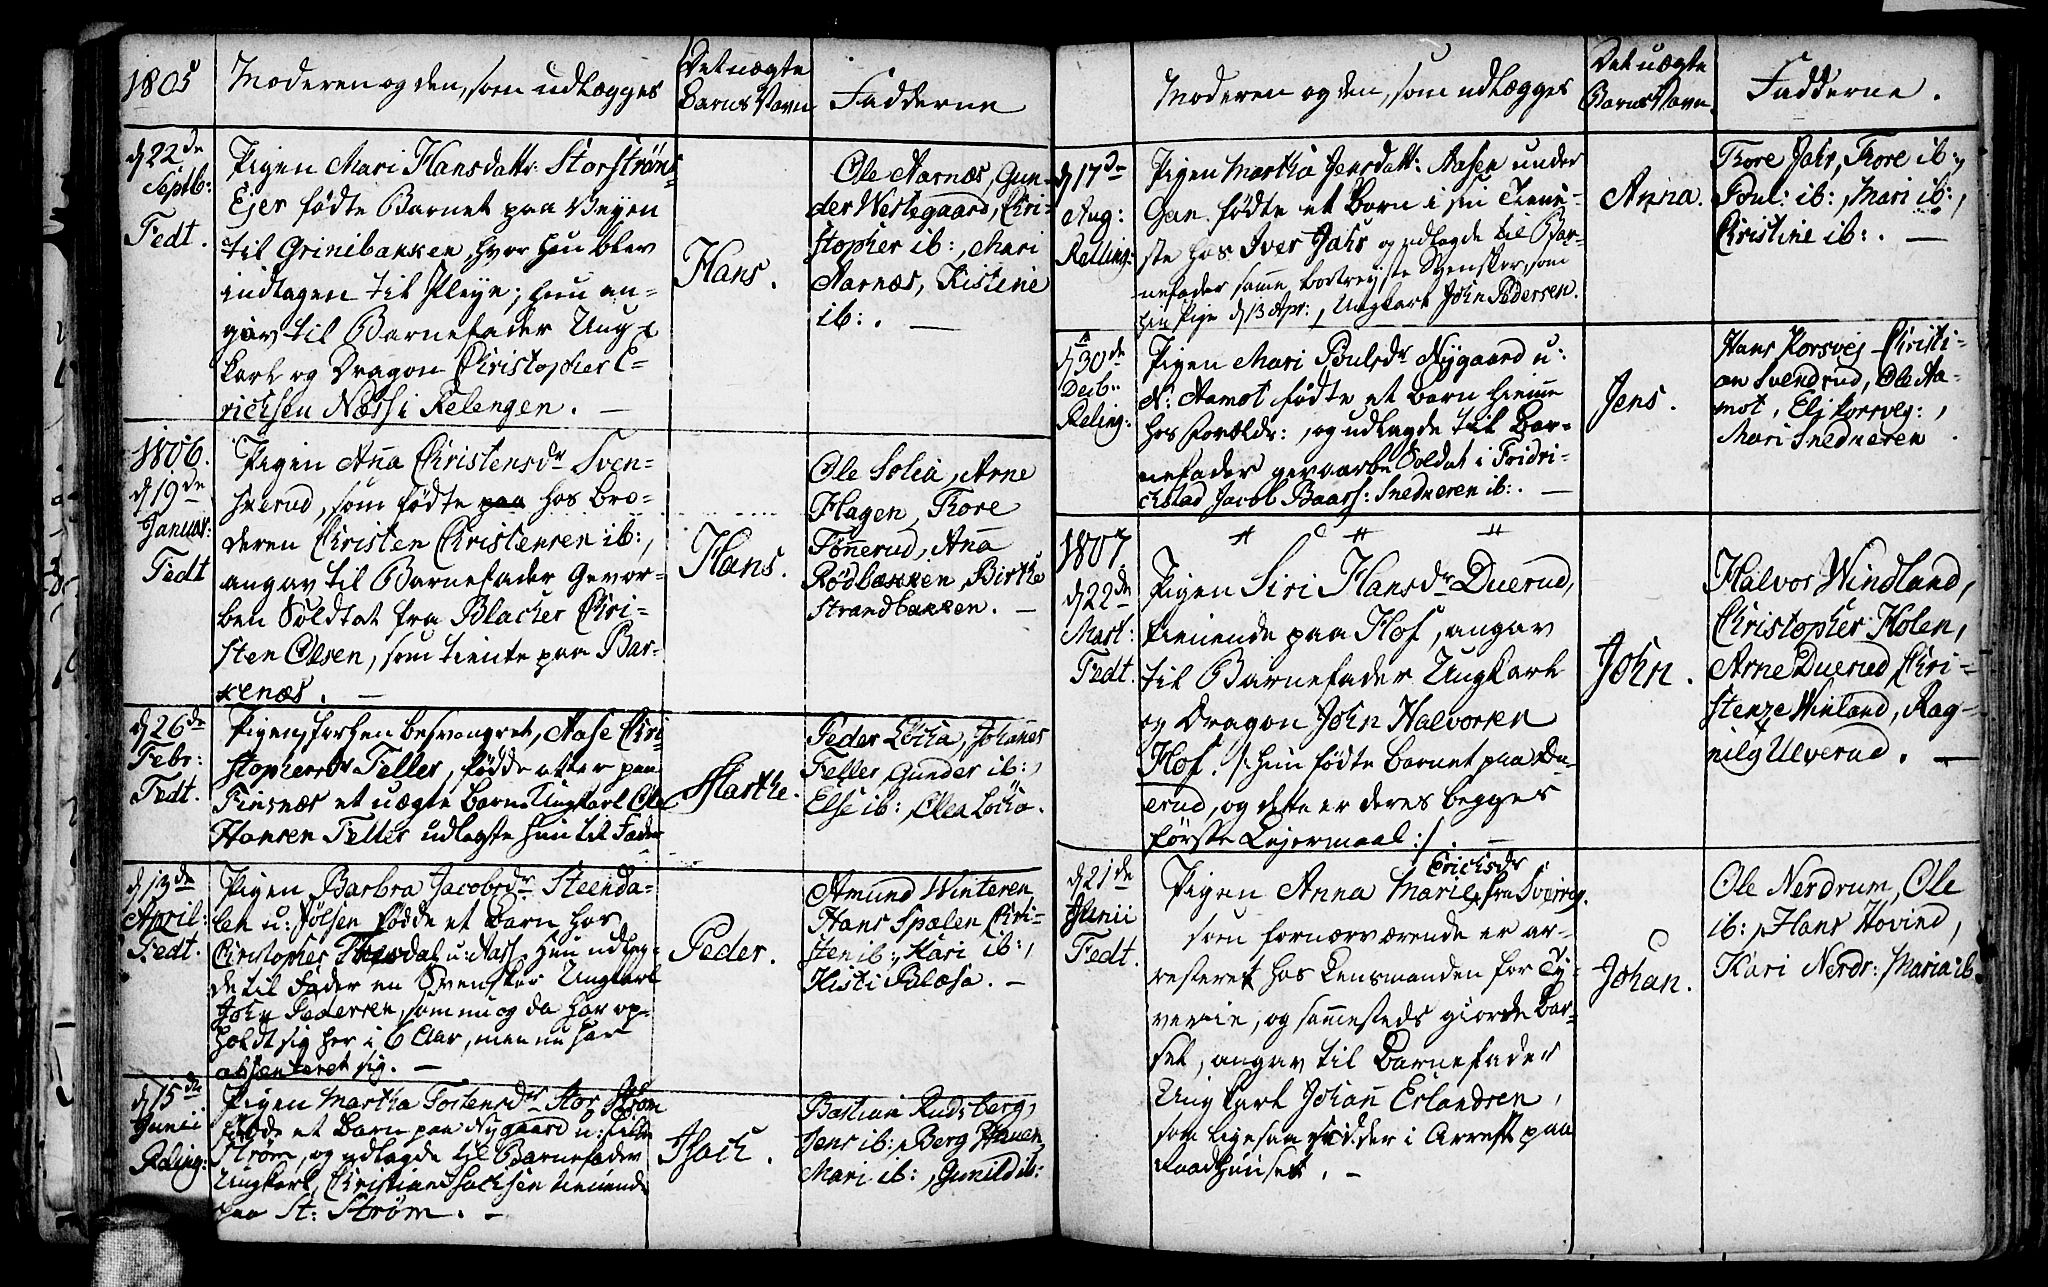 1805
Moderen og den, som udlægges
Det uægte
Barns Navn
Fadderne
d 22de
Septb:
Fedt.
Pigen Mari Hansdattr Storstrøms
Ejer fødte Barnet paa Veyen
til Grinibakken, hvor hun blev
indtagen til Pleye; hun an-
gav til Barnefader Ung-
karl og Dragon Christopher E-
richsen Næss i Relengen. —
Hans.
Ole Aarnæs, Gun-
der Westegaard, Chri-
stopher ib:, Mari
Aarnæs, Kistine
ib:. —
1806.
d 19de
Januar:
Fedt
Pigen Aña Christensdr Sven-
skerud, som fødte paa hos Bro-
deren Christen Christensen ib:,
angav til Barnefader Gevor-
ben Soldat fra Blacher Chri-
sten Olsen, som tiente paa Bar-
kenæs. —
Hans.
Ole Solia, Arne
Hagen, Tore
Tøñerud, Aña
Rødbakken, Birthe
Strandbakken. —
d 26de
Febr:
Fedt.
Pigen, forhen besvangret, Aase Chri-
stophersdr Teller, fødde atter paa
Finsnæs et uægte Barn. Ungkarl Ole
Hansen Teller udlagste hun til Fader
Marthe.
Peder Løcka, Johañes
Teller, Gunder ib:,
Else ib:, Olea Løcka.
d 13de
April:
Fedt.
Pigen Barbra Jacobsdr Steenda-
len u: Jølsen fødde et Barn hos
Christopher dal u: Aas. Hun udlag-
de til Fader en Svensker Ungkarl
John Pedersen, som nu og da har op-
holdt sig her i 6 Aar, men nu har
absenteret sig. —
Peder.
Amund Winteren,
Hans Spalen Chri-
sten ib:, Kari ib:,
Kisti Blæsa. —
d 15de
Junii
Reling:
Pigen Martha Tostensdr Stor Strøm
fødde et Barn paa Nygaard u: Lille
Strøm, og udlagde til Barnefader
Ungkarl, Christian Isachsen tienende
paa St: Strøm. —
Isach.
Bastian Rudsberg,
Jens ib:, Berg Hauen,
Mari ib:, Gunild ib:
Moderen og den, som udlægges
Det uægte
Barns Navn
Fadderne.
d 17de
Aug:
Relling:
Pigen Martha Jensdatt: Aasen under
Gan. fødte et Barn i sin Tiene-
ste hos Iver Jahr og udlagde til Bar-
nefader samme bortreyste Svensker, som
hin Pige d 13 Apr:, Ungkarl John Pedersen.
Anna.
Tore Jahr, Tore ib:,
Poul: ib:, Mari ib:,
Christine ib:. —
d 30de
Decb:
Reling:
Pigen Mari Poulsdr Nygaard u:
N: Aamot fødte et Barn hieme
hos Forældr:, og udlagde til Bar-
nefader gevorbe Soldat i Fridri-
chstad Jacob Baars: Snedkeren ib:. —
Jens.
Hans Korsvej Christi-
an Svendrud, Ole Aa-
mot, Elj Korsveg:,
Mari Snedkeren.
1807
d 22de
Mart:
Fedt.
Pigen Siri Hansdr Duerud,
tienende paa Hof, angav
til Barnefader Ungkarl
og Dragon John Halvorsen
Hof. /: hun fødte Barnet paa Du-
erud, og dette er deres begges
første Lejermaal :/. —
John.
Halvor Windland,
Christopher Holen,
Arne Duerud, Chri-
stenze Winland, Rag-
nild Ulverud. —
d 21de
Junii
Fedt.
Ericksdr
Pigen Anna Marie, fra Sverrig.
som fornærværende er ar-
resteret hos Lensmanden for Ty-
verie, og samesteds giorde Bar-
sel, angav til Barnefader
Ungkarl Johañ Erlandsen,
som ligesaa sidder i Arrest paa
Raadhuuset. —
Johan.
Ole Nerdrum, Ole
ib:, Hans Hovind,
Kari Nerdr: Maria ib.